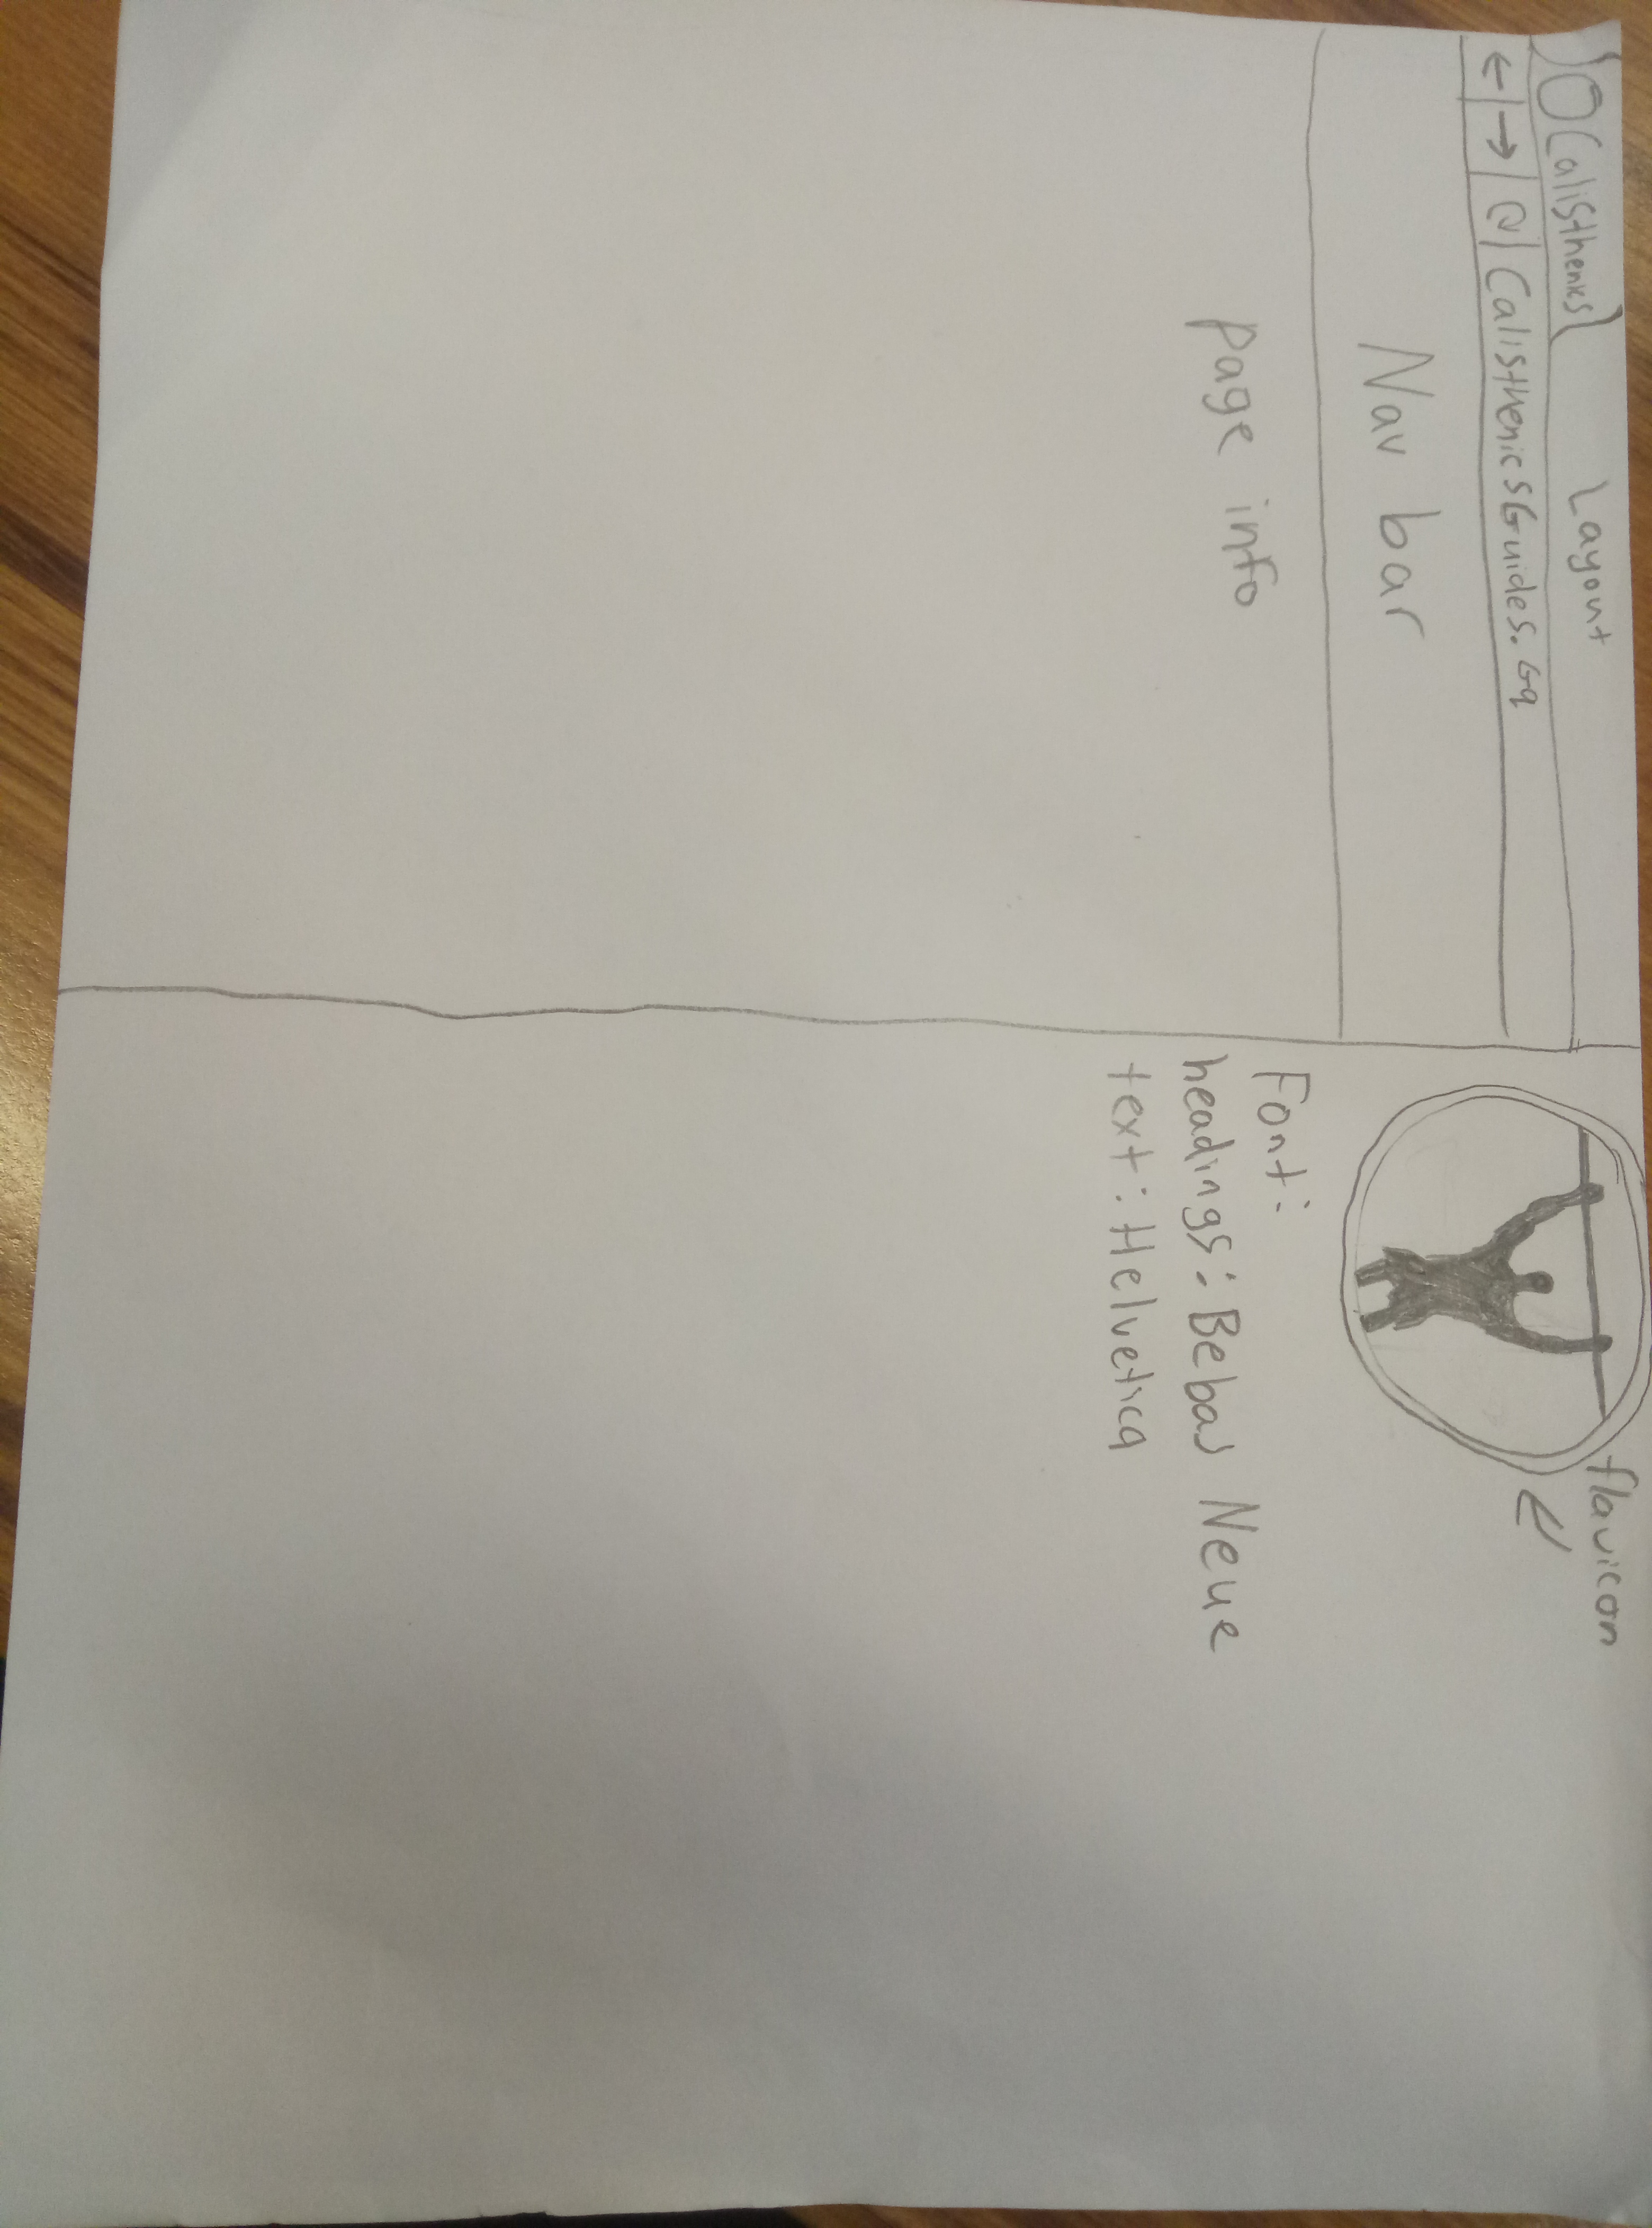 Layout
Calisthenics
← → CalisthenicsGuides.Gq
Nav bar
page info
flavicon
Font:
headings: Bebas Neue
text: Helvetica